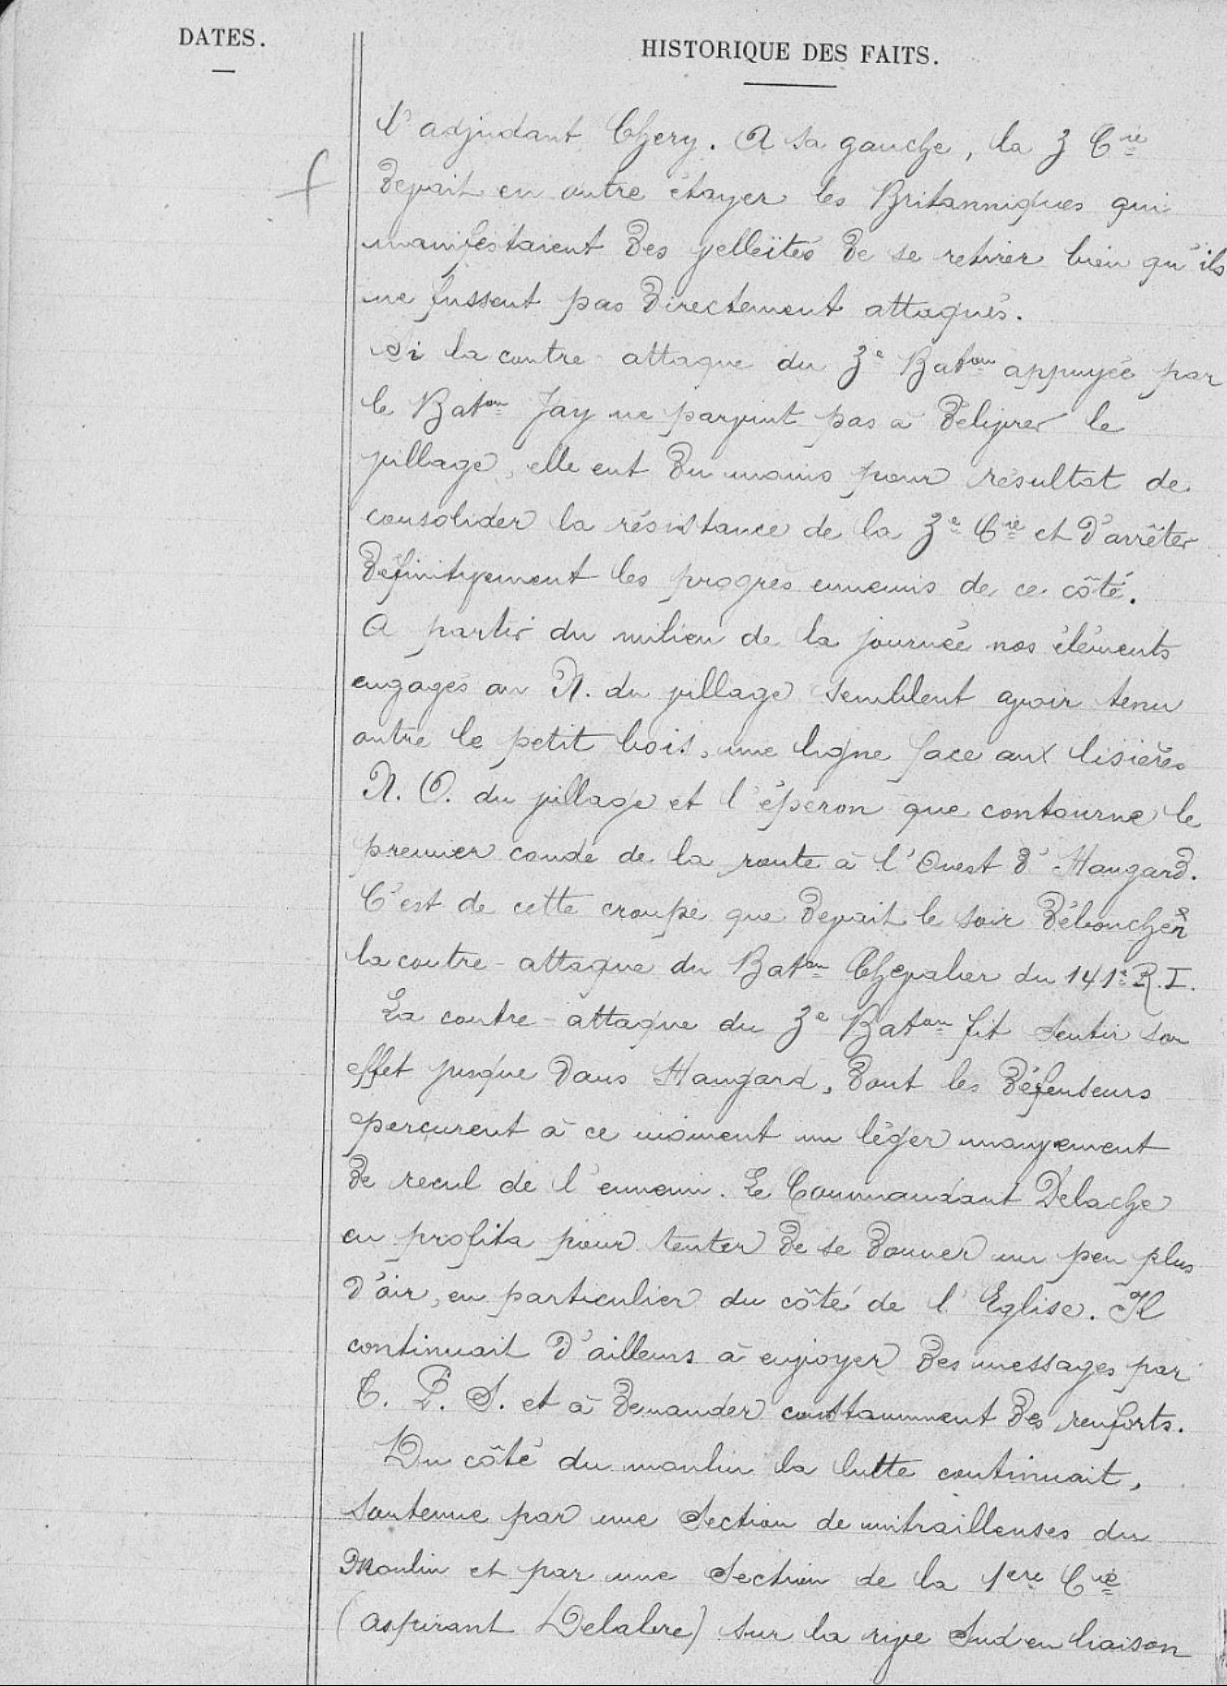 DATES.
HISTORIQUE DES FAITS.
l'adjudant Chery. A sa gauche, la 3 Cie
devait en outre étayer les Britanniques qui
manifestaient des velleïtés de se retirer bien qu'ils
ne fussent pas directement attaqués.
Si la contre attaque du 3e Baton appuyée par
le Baton Jay ne parvint pas à délivrer le
village, elle eut du moins pour résultat de
consolider la résistance de la 3e Cie et d'arrêter
définitivement les progrès ennemis de ce côté.
A partir du milieu de la journée nos éléments
engagés au N. du village semblent avoir tenu
outre le petit bois, une ligne face aux lisières
N. O. du village et l'éperon que contourne le
premier coude de la route à l'Ouest d'Hangard.
C'est de cette croupe que devait le soir déboucher
la contre-attaque du Baton Chevalier du 141e R.I.
La contre-attaque du 3e Baton fit sentir son
effet jusque dans Hangard, dont les défenseurs
perçurent à ce moment un léger mouvement
de recul de l'ennemi. Le Commandant Delache
en profita pour tenter de se donner un peu plus
d'air, en particulier du côté de l'Eglise. Il
continuait d'ailleurs à envoyer des messages par
T. P. S. et à demander constamment des renforts.
Du côté du moulin la lutte continuait,
soutenue par une Section de mitrailleuses du
Moulin et par une Section de la 1ere Cie
(aspirant Delabre) sur la rive Sud en liaison